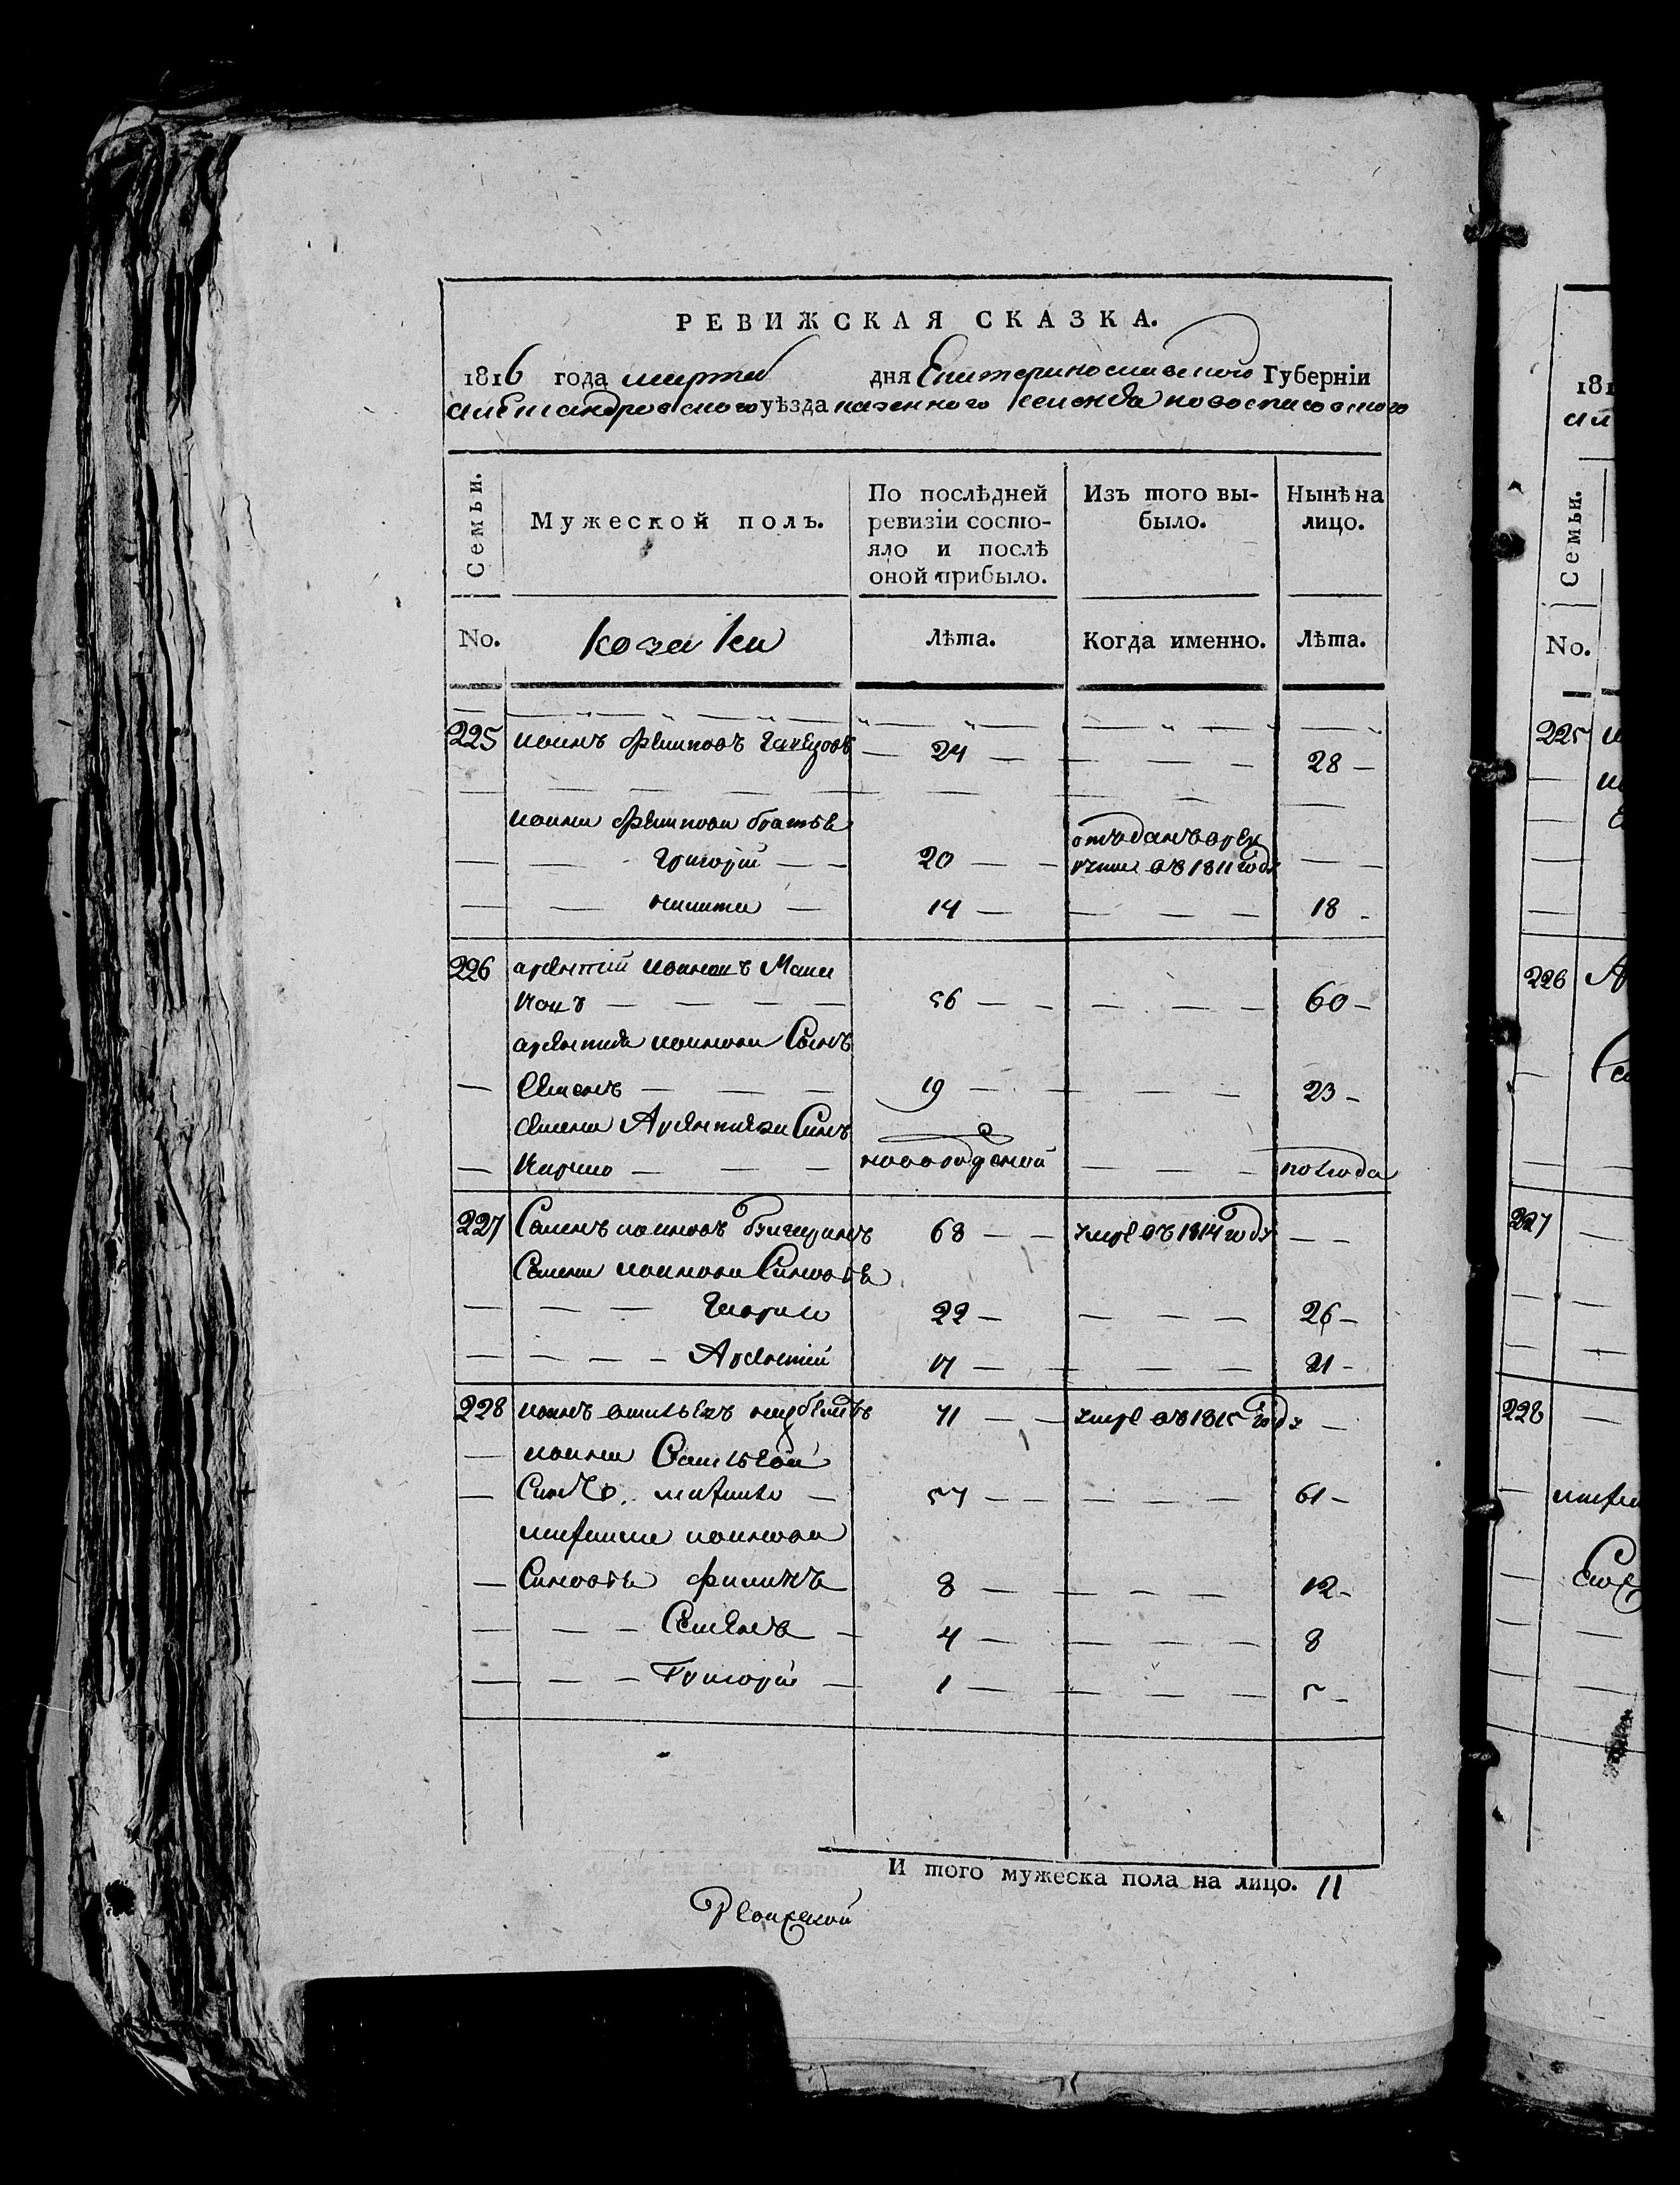 РЕВИЖСКАЯ СКАЗКА.
1816 года марта дня Екатеринославского Губерніи
александровского уѣзда казенного селенія новоспасовского
Семьи.
Мужеской полъ.
По послѣдней ревизіи состояло и послѣ оной прибыло.
Изъ того выбыло.
Нынѣ на лицо.
No.
козаки
Лѣта.
Когда именно.
Лѣта.
225 иванъ филиповъ 24 28
ивана филипова братья
григорій 20 отъданъ в рек
руты въ 1811 году
никита 14 18
226 арсентій ивановъ
56 60
арсентія иванова Сынъ
Семенъ 19 23
семена Арсентьева Сынъ
кирило новорожденой полгода
227 Семенъ ивановъ 68 умре въ 1814 году
Семена иванова Синовья
Гаврило 22 26
Арсентій 17 21
228 иванъ васильевъ 71 умре въ 1815 году
ивана Васильева
Синъ матвей 57 61
матвия иванова
Синовья филипъ 8 12
Семенъ 4 8
Григорій 1 5
И того мужеска пола на лицо. 11
181
Семьи.
No.
225
226
227
228